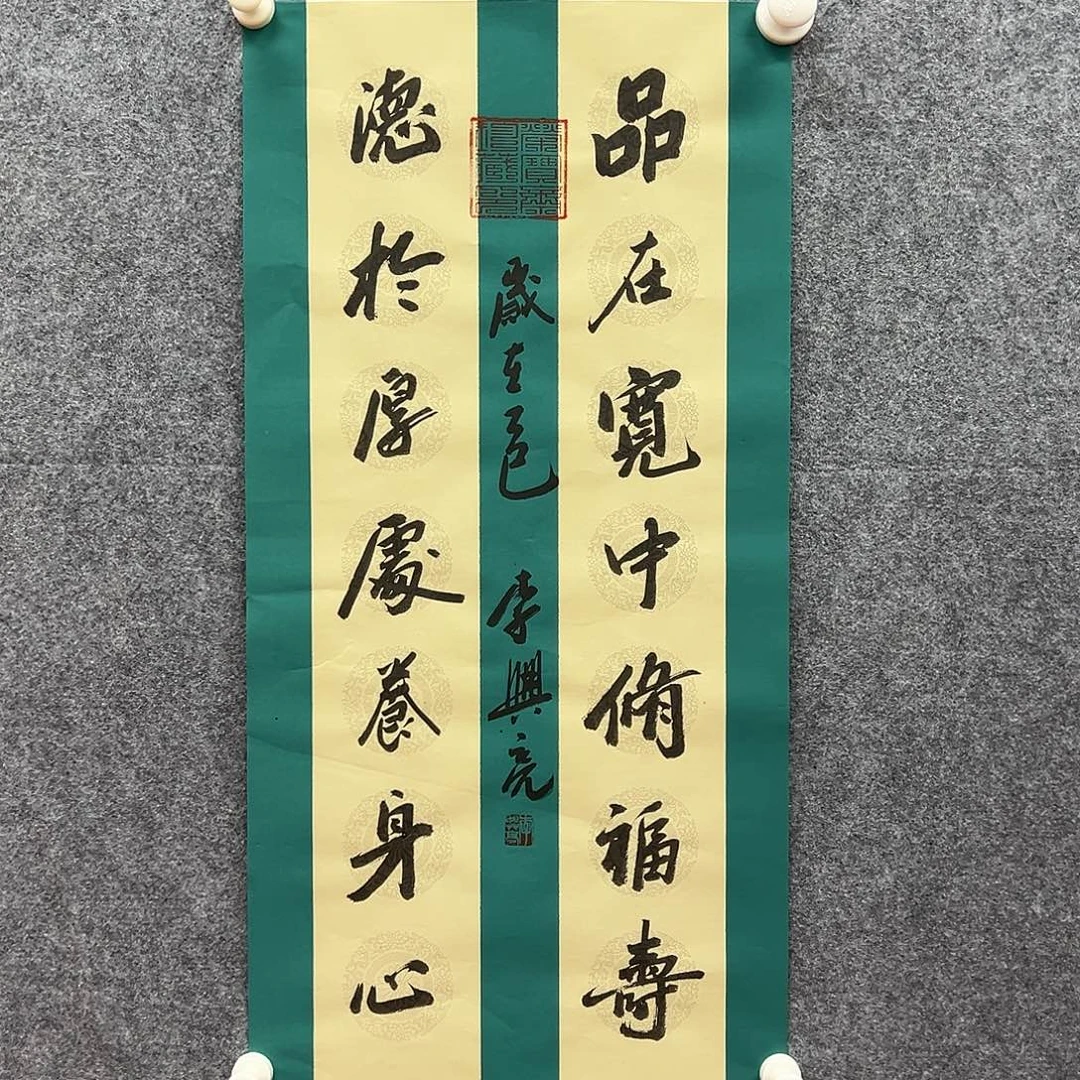 品在寬中脩福壽
歲在乙巳 李興亮
德於厚處養身心